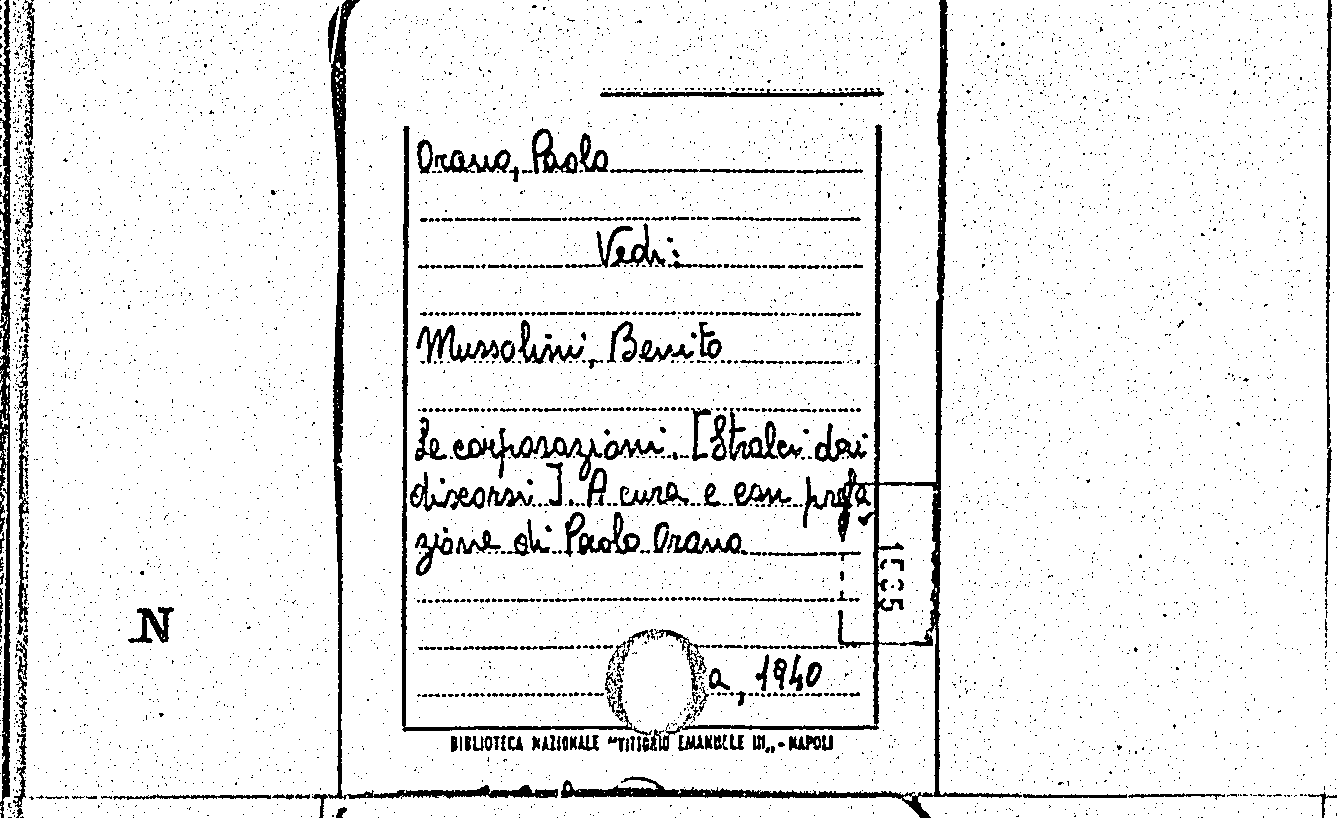 Orano, Paolo
Vedi:
Mussolini, Benito
Le corporazioni. [Stralci dai
discorsi]. A cura e con prefa
zione di Paolo Orano
1535
N
a, 1940
BIBLIOTECA NAZIONALE "VITTORIO EMANUELE III" - NAPOLI